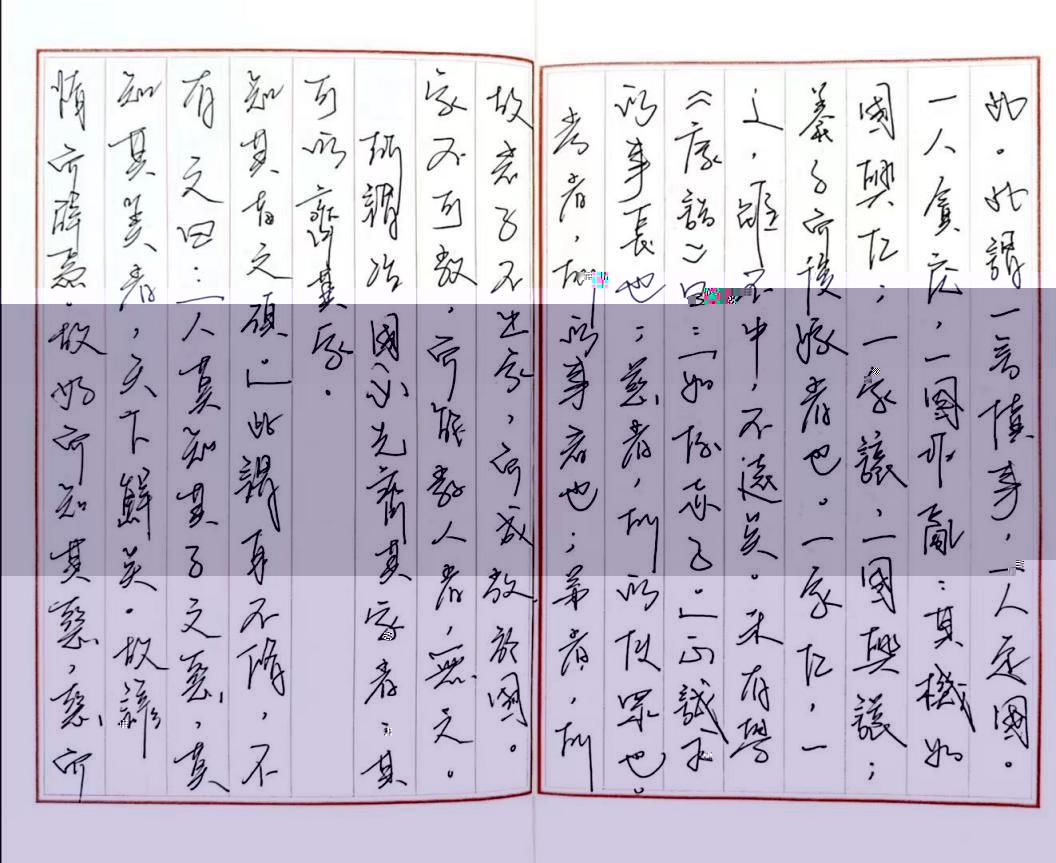 惰而辟焉。故好而知其惡，惡而
知其美者，天下鮮矣。故諺
有之曰：「人莫知其子之惡，莫
知其苗之碩。」此謂身不脩，不
可以齊其家。
所謂治國必先齊其家者：其
家不可教，而能教人者，無之。
故君子不出家，而成教於國。
孝者，所以事君也；弟者，所
以事長也；慈者，所以使眾也。
《康誥》曰：「如保赤子。」心誠求
之，雖不中，不遠矣。未有學
養子而後嫁者也。一家仁，一
國興仁；一家讓，一國興讓；
一人貪戾，一國作亂：其機如
此。此謂一言僨事，一人定國。